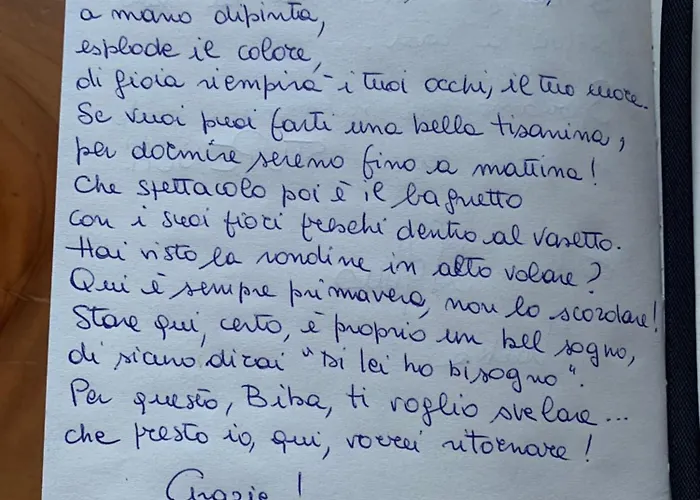 a mano dipinta,
esplode il colore,
di gioia riempirà i tuoi occhi, il tuo cuore.
Se vuoi puoi farti una bella tisanina,
per dormire sereno fino a mattina!
Che spettacolo poi è il bagnetto
con i suoi fiori freschi dentro al vasetto.
Hai visto la rondine in alto volare?
Qui è sempre primavera, non lo scordare!
Stare qui, certo, è proprio un bel sogno,
di sicuro dirai "Di lei ho bisogno".
Per questo, Biba, ti voglio svelare...
che presto io, qui, vorrei ritornare!
Grazie!